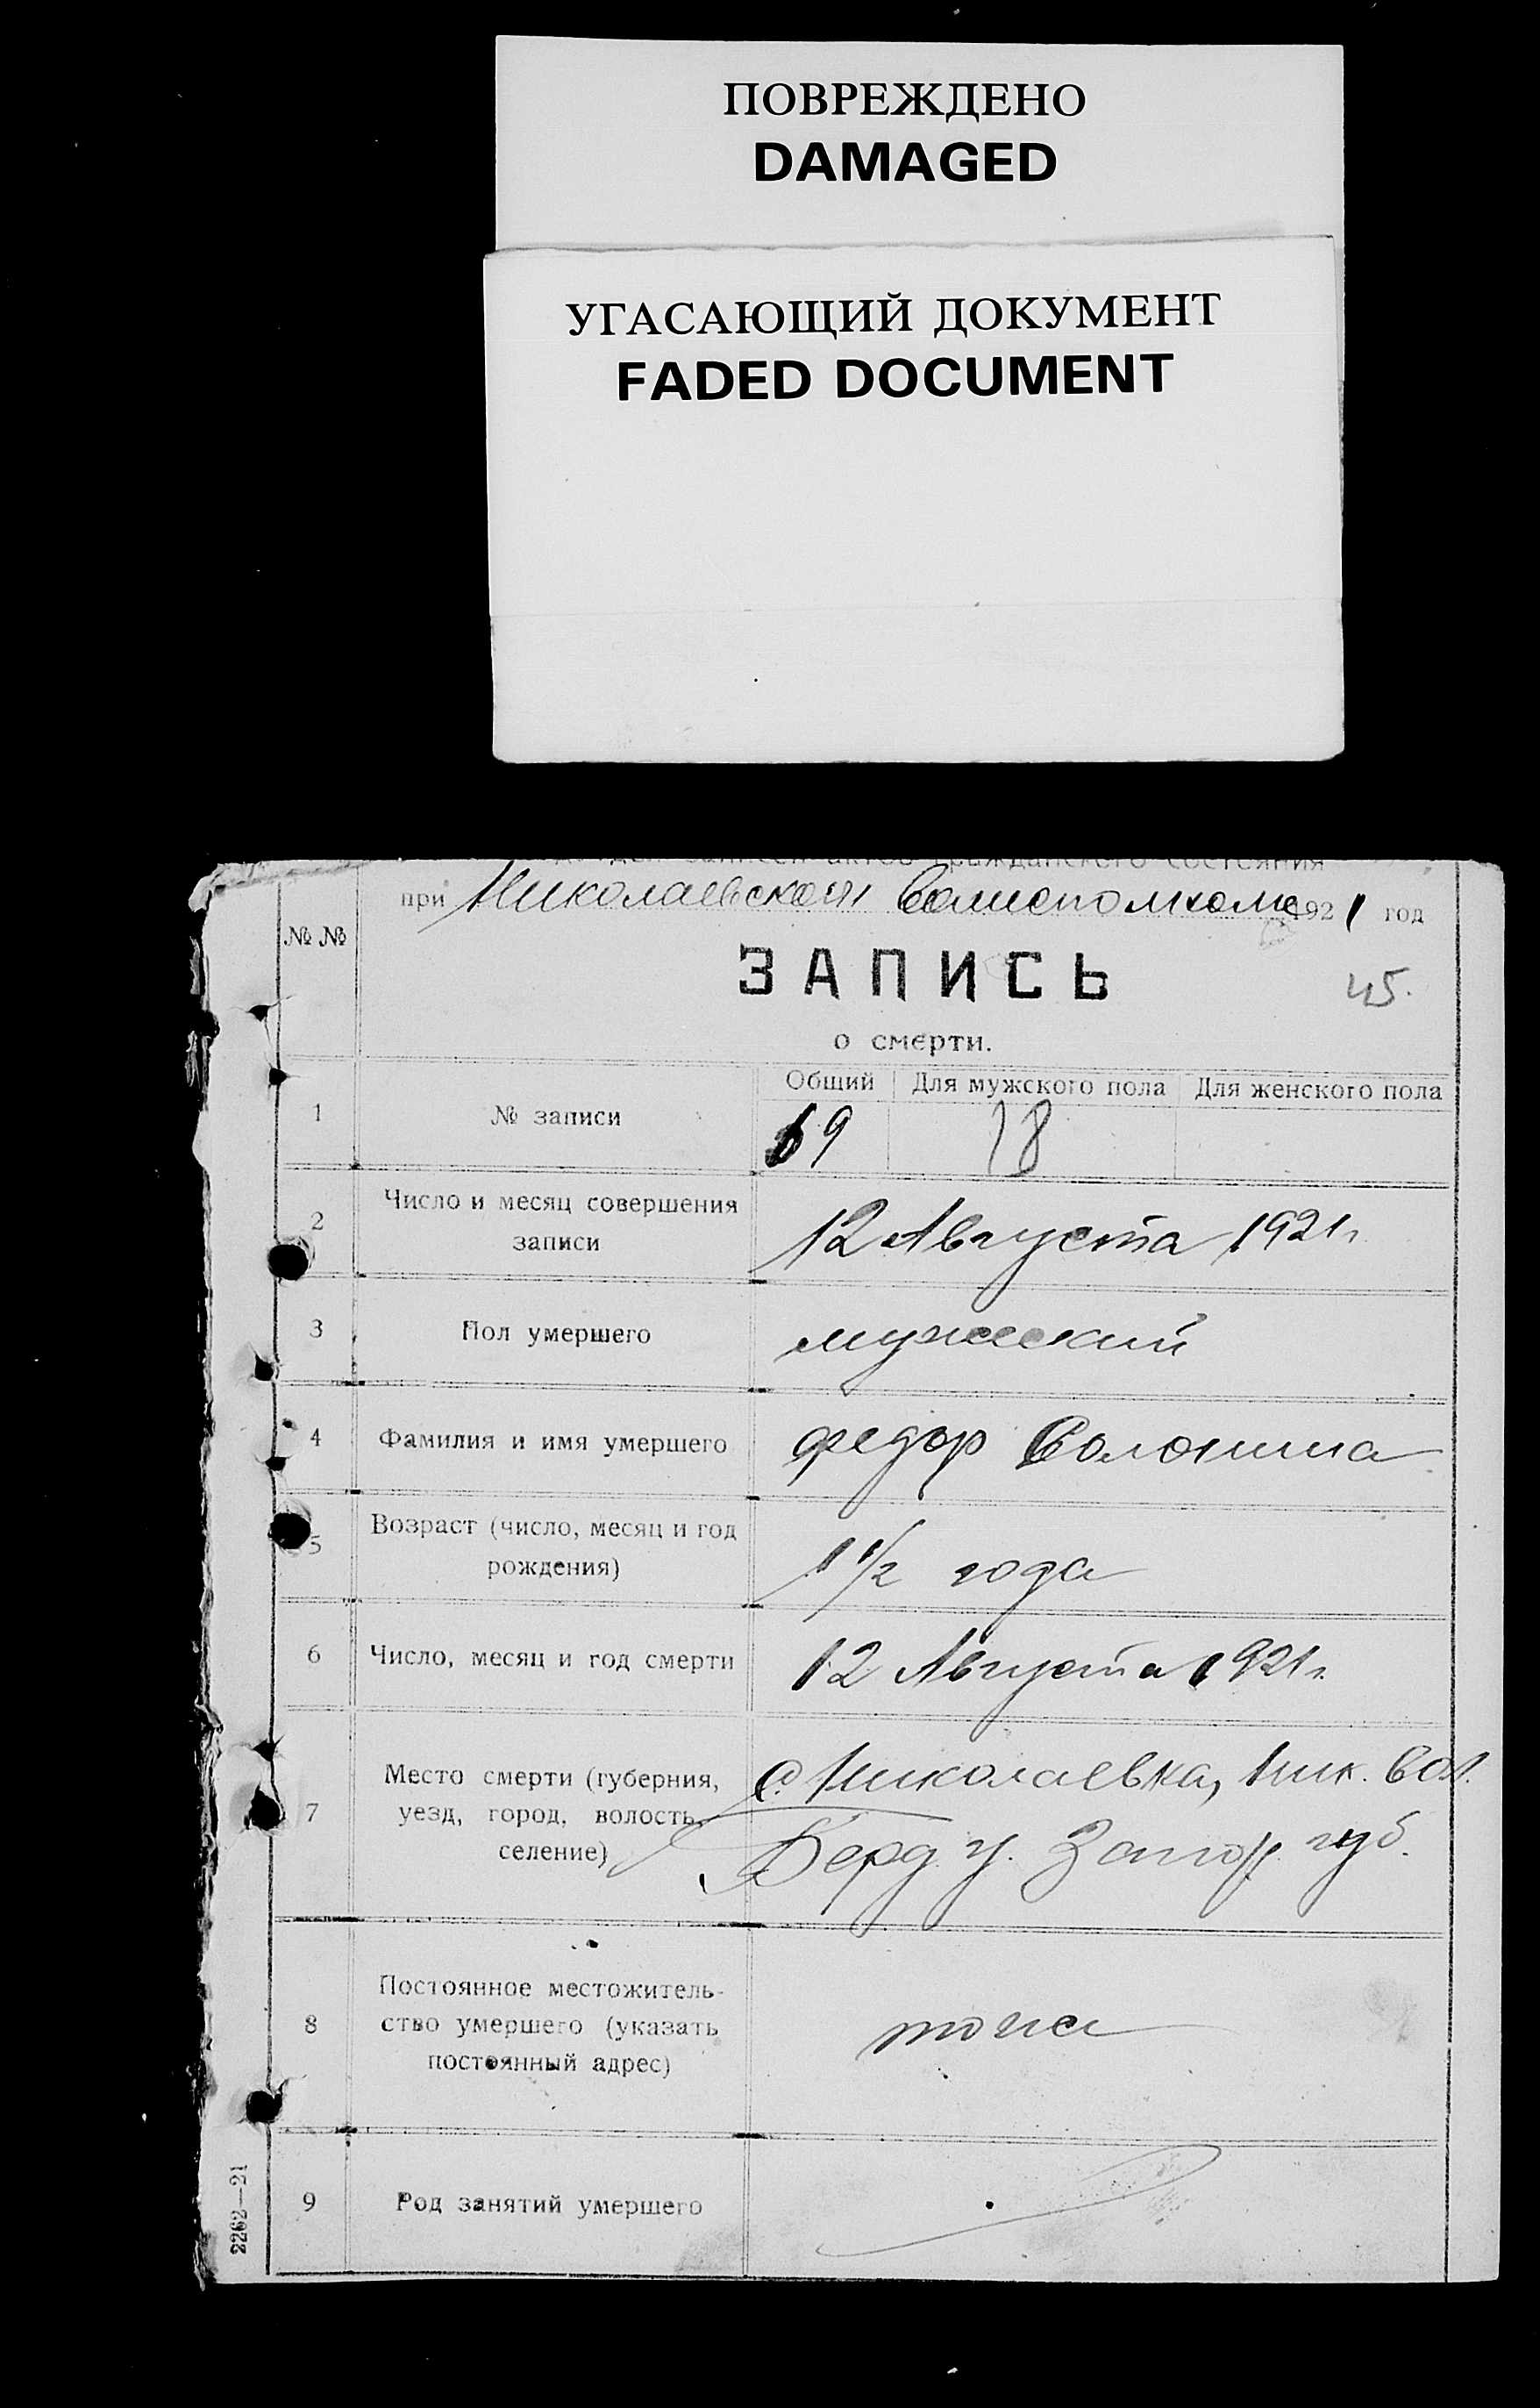 ПОВРЕЖДЕНО
DAMAGED
УГАСАЮЩИЙ ДОКУМЕНТ
FADED DOCUMENT
записей актов гражданского состояния
при Николаевском Волисполкоме 1921 год
№ №
ЗАПИСЬ
45.
о смерти.
Общий Для мужского пола Для женского пола
1 № записи 69 38
2 Число и месяц совершения
записи
12 Августа 1921 г.
3 Пол умершего мужеский
4 Фамилия и имя умершего Федор
5 Возраст (число, месяц и год
рождения)
1 1/2 года
6 Число, месяц и год смерти 12 Августа 1921 г.
7 Место смерти (губерния,
уезд, город, волость,
селение)
с. Николаевка, Ник. вол.
Берд. у. Запор. губ.
8 Постоянное местожитель-
ство умершего (указать
постоянный адрес)
9 Род занятий умершего
2262—21